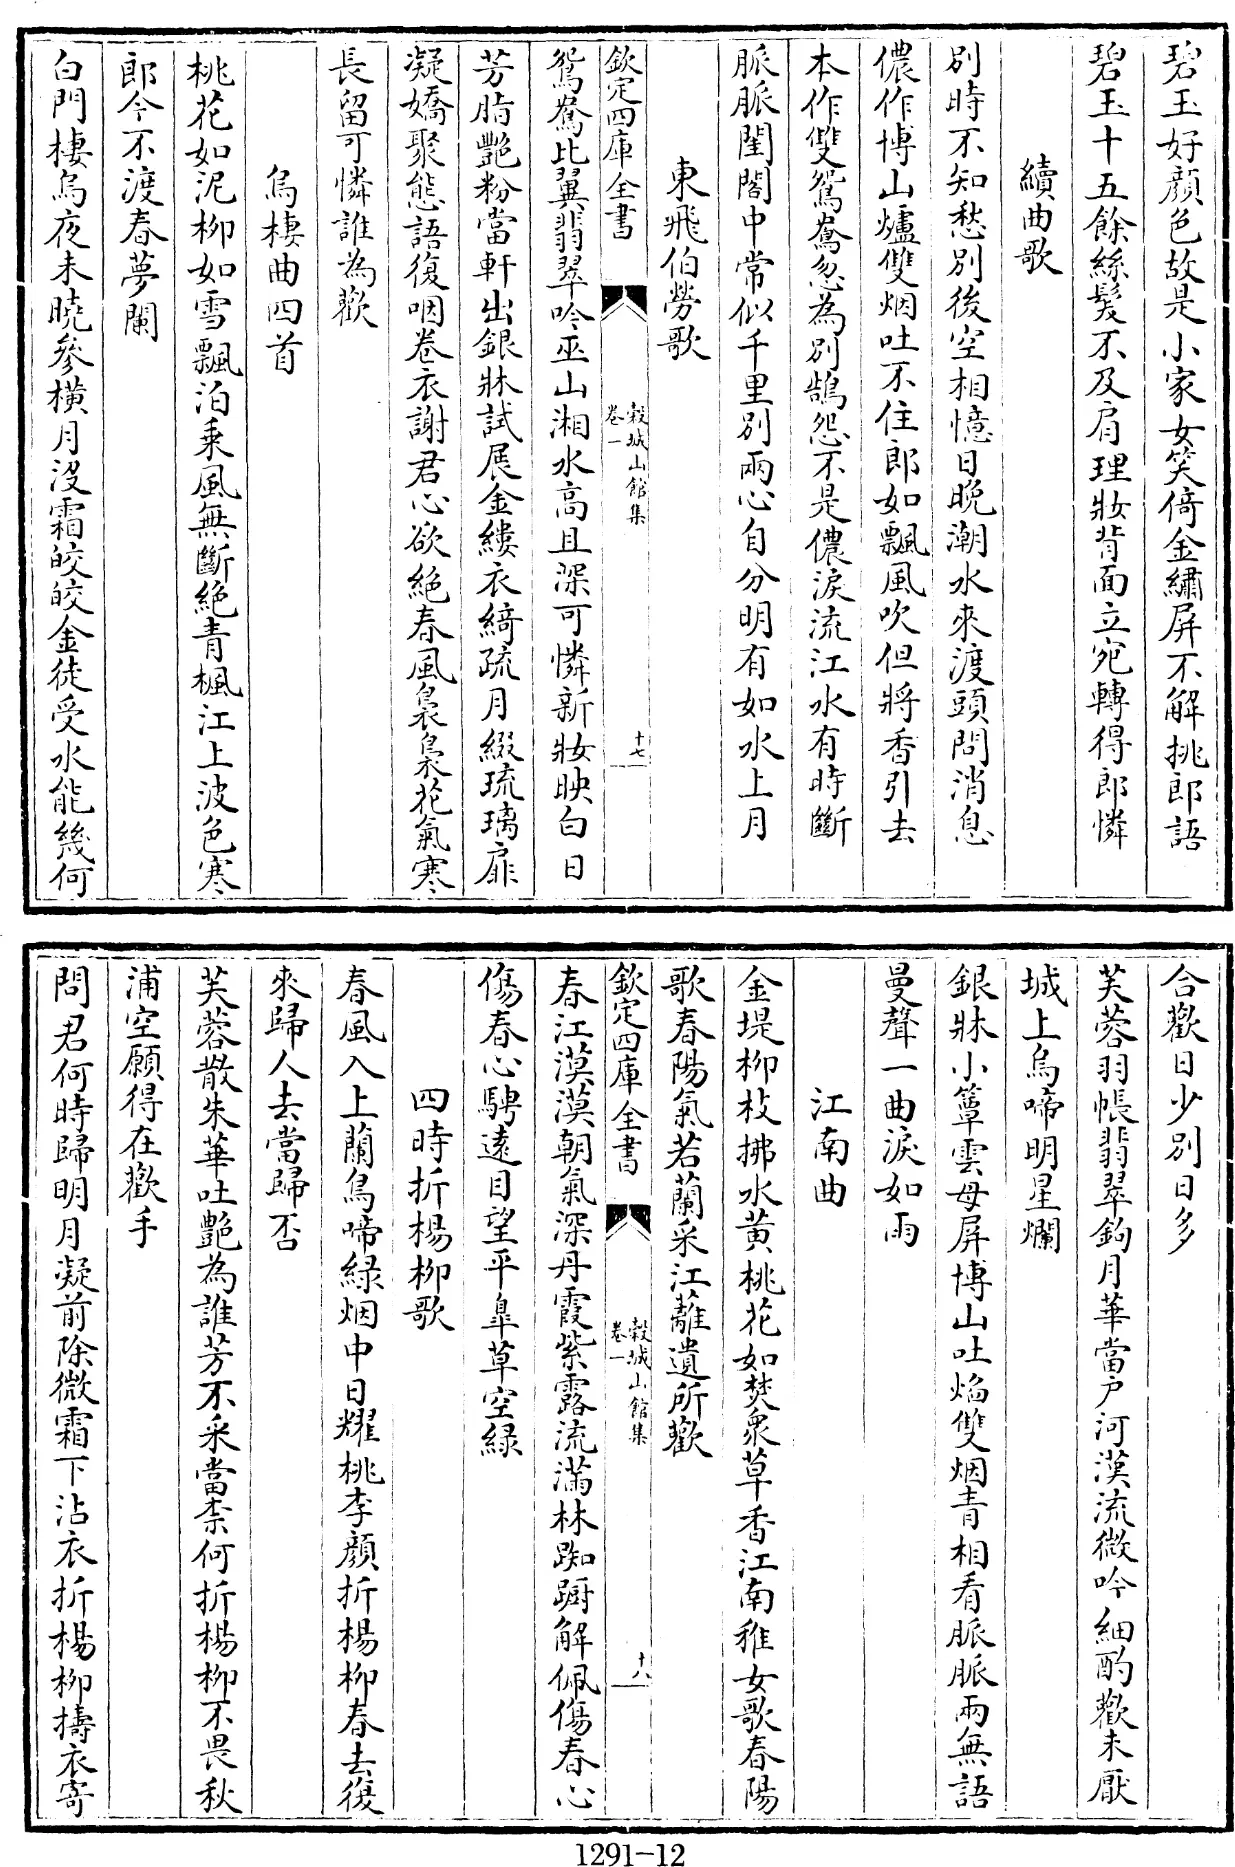 碧玉好顔色故是小家女笑倚金繡屏不解挑郎語
碧玉十五餘絲髮不及肩理妝背面立宛轉得郎憐
續曲歌
別時不知愁別後空相憶日晚潮水來渡頭問消息
儂作博山爐雙烟吐不住郎如飄風吹但將香引去
本作雙鴛鴦忽為別鵠怨不是儂淚流江水有時斷
脈脈閨閣中常似千里別兩心自分明有如水上月
東飛伯勞歌
欽定四庫全書
榖城山館集
卷一
十七
鴛鴦比翼翡翠吟巫山湘水高且深可憐新妝映白日
芳脂艷粉當軒出銀牀試展金縷衣綺疏月綴琉璃扉
凝嬌聚態語復咽卷衣謝君心欲絶春風裊裊花氣寒
長留可憐誰為歡
烏棲曲四首
桃花如泥柳如雪飄泊乘風無斷絶青楓江上波色寒
郎今不渡春夢闌
白門棲烏夜未曉參橫月沒霜皎皎金徒受水能幾何
合歡日少別日多
芙蓉羽帳翡翠鉤月華當戶河漢流微吟細酌歡未厭
城上烏啼明星爛
銀牀小簟雲母屏博山吐焰雙烟青相看脈脈兩無語
曼聲一曲淚如雨
江南曲
金堤柳枝拂水黄桃花如焚衆草香江南稚女歌春陽
歌春陽氣若蘭采江蘺遺所歡
欽定四庫全書
榖城山館集
卷一
十八
春江漠漠朝氣深丹霞紫露流滿林踟蹰解佩傷春心
傷春心騁遠目望平臯草空緑
四時折楊柳歌
春風入上蘭鳥啼緑烟中日耀桃李顔折楊柳春去復
來歸人去當歸否
芙蓉散朱華吐艷為誰芳不采當柰何折楊柳不畏秋
浦空願得在歡手
問君何時歸明月凝前除微霜下沾衣折楊柳擣衣寄
1291-12